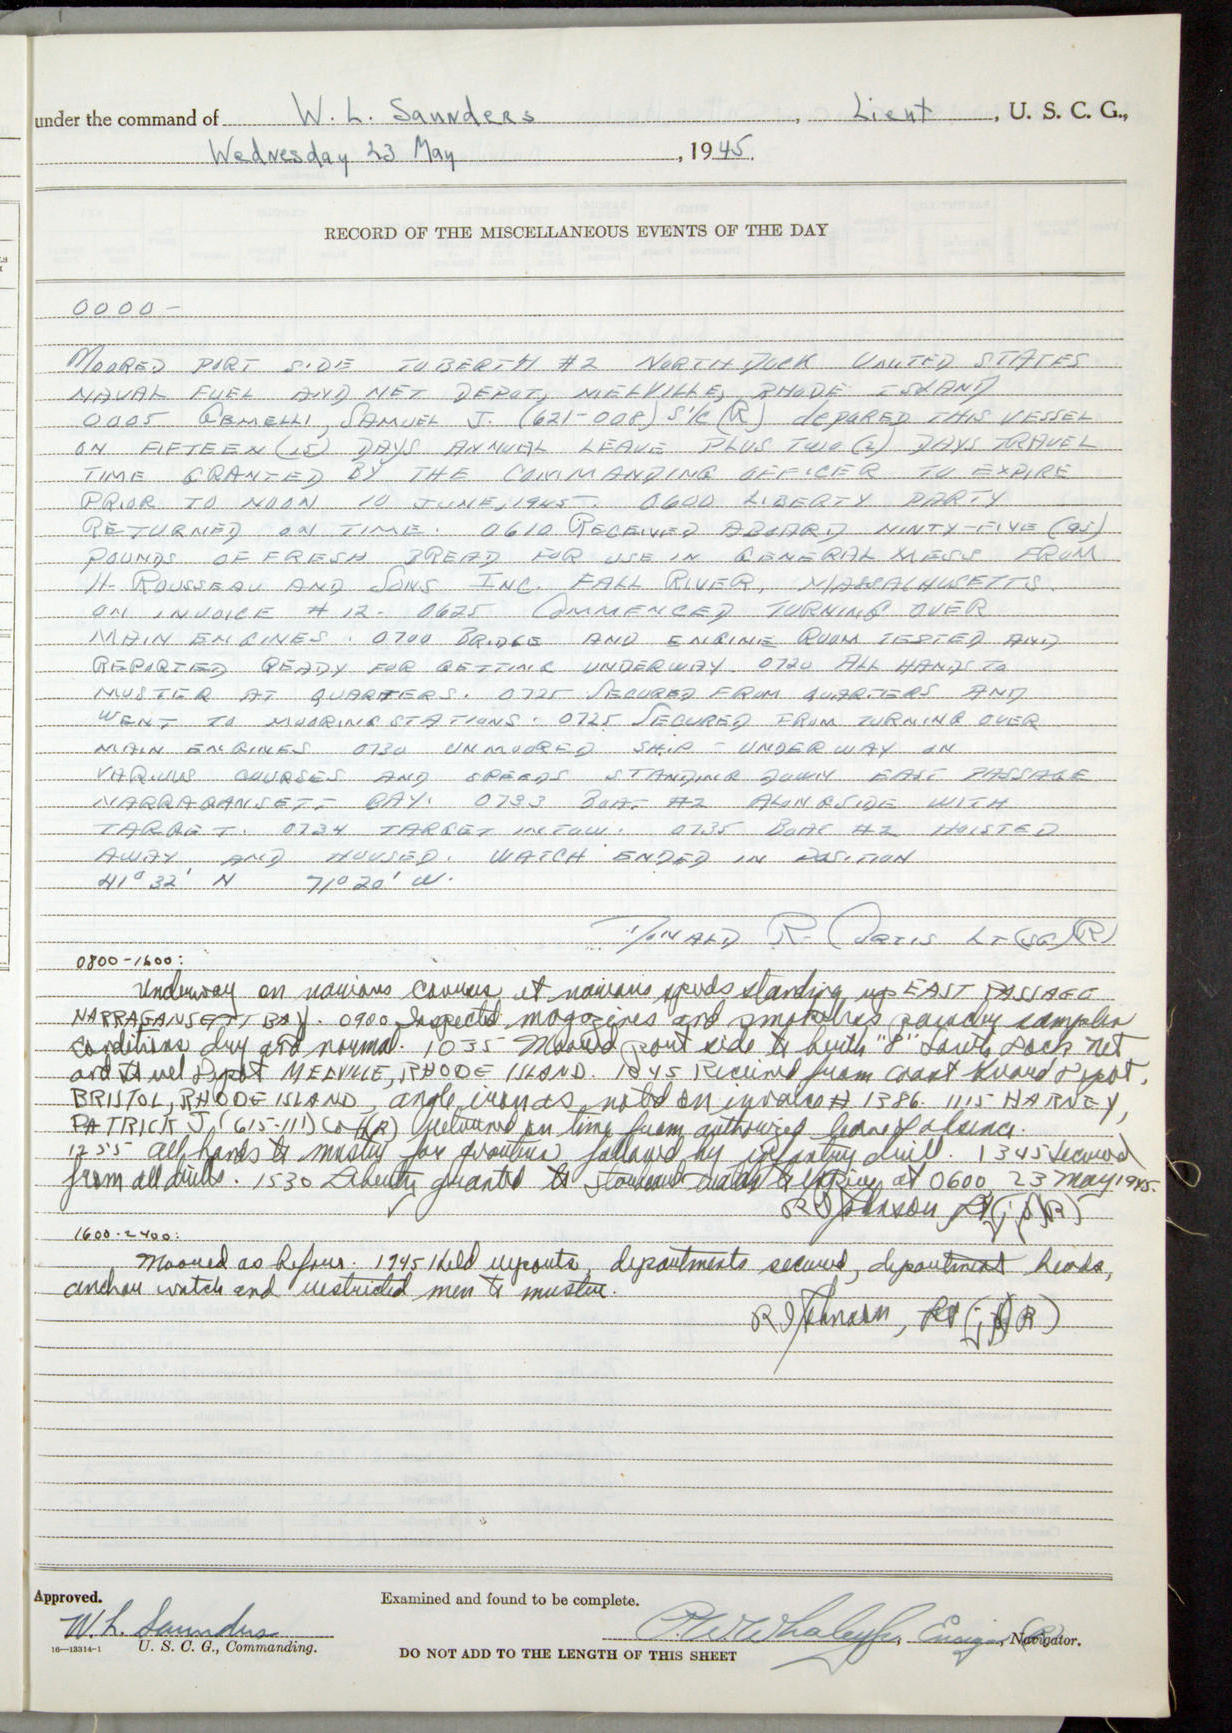 under the command of W. L. Saunders, Lieut, U. S. C. G.,
Wednesday 23 May, 1945.
RECORD OF THE MISCELLANEOUS EVENTS OF THE DAY
0000-
MOORED PORT SIDE TO BERTH #2 NORTH DOCK UNITED STATES
NAVAL FUEL AND NET DEPOT, MELVILLE, RHODE ISLAND
0005 SAMUEL J. (621-008) S1/C (R) depared THIS VESSEL
ON FIFTEEN (15) DAYS ANNUAL LEAVE PLUS TWO (2) DAYS TRAVEL
TIME GRANTED BY THE COMMANDING OFFICER TO EXPIRE
PRIOR TO NOON 10 JUNE, 1945. 0600 LIBERTY PARTY
RETURNED ON TIME. 0610 RECEIVED ABOARD NINTY-FIVE (95)
POUNDS OF FRESH BREAD FOR USE IN GENERAL MESS FROM
H. ROUSSEAU AND SONS INC. FALL RIVER, MASSACHUSETTS.
ON INVOICE #12. 0625 COMMENCED TURNING OVER
MAIN ENGINES. 0700 BRIDGE AND ENGINE ROOM TESTED AND
REPORTED READY FOR GETTING UNDERWAY. 0720 ALL HANDS TO
MUSTER AT QUARTERS. 0725 SECURED FROM QUARTERS AND
WENT TO MOORING STATIONS. 0725 SECURED FROM TURNING OVER
MAIN ENGINES 0730 UNMOORED SHIP - UNDERWAY ON
VARIOUS COURSES AND SPEEDS STANDING DOWN EAST PASSAGE
NARRAGANSETT BAY. 0733 BOAT #2 ALONGSIDE WITH
TARGET. 0734 TARGET IN TOW. 0735 BOAT #2 HOISTED
AWAY AND HOUSED. WATCH ENDED IN POSITION
41° 32' N 71° 20' W.
DONALD R. CURTIS LT (JG) (R)
0800-1600:
Underway on various courses at various speeds standing up EAST PASSAGE
NARRAGANSETT BAY. 0900 Inspected magazines and smokeless powder samples
conditions dry and normal. 1035 Moored port side to berth South Dock Net
and Fuel Depot MELVILLE, RHODE ISLAND. 1045 Received from Coast Guard Depot,
BRISTOL, RHODE ISLAND, angle iron as noted on invoice # 1386. 1115 HARNEY,
PATRICK J. (615-111) (R) returned on time from authorized leave of absence.
1255 All hands to muster for quarters followed by infantry drill. 1345 Secured
from all drills. 1530 Liberty granted to to expire at 0600 23 May 1945.
R I Johnson Lt (jg) (R)
1600-2400:
Moored as before. 1945 Held reports, departments secured, department heads,
anchor watch and restricted men to muster.
R I Johnson, Lt (jg) (R)
Approved.
W. L. Saunders
U. S. C. G., Commanding.
16-13314-1
Examined and found to be complete.
Ensign (R), Navigator.
DO NOT ADD TO THE LENGTH OF THIS SHEET